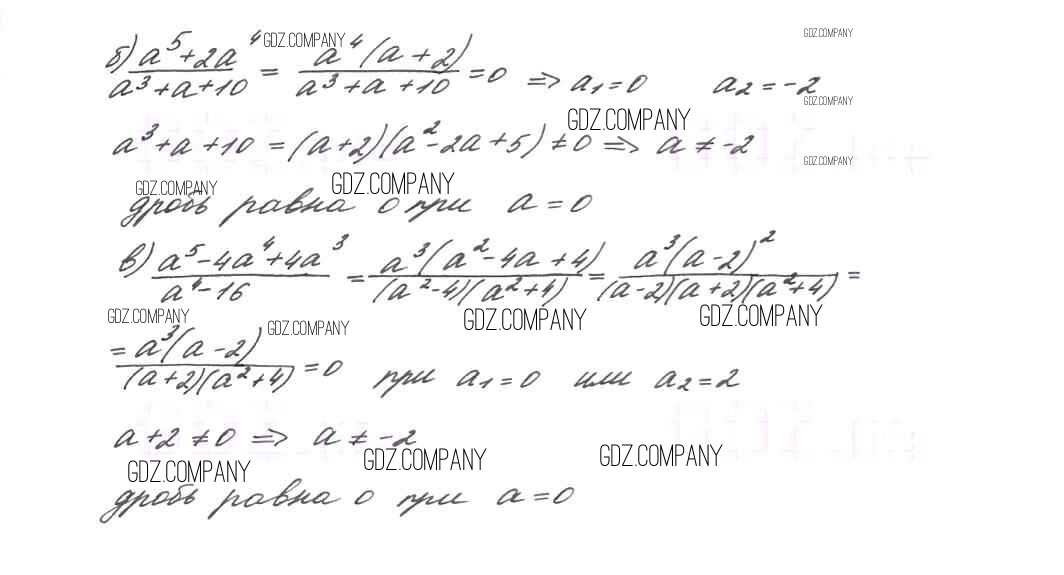 GDZ.COMPANY
GDZ.COMPANY
б) (a⁵+2a⁴)/(a³+a+10) = (a⁴(a+2))/(a³+a+10) =0 => a₁=0 a₂=-2
GDZ.COMPANY
GDZ.COMPANY
a³+a+10 = (a+2)(a²-2a+5) ≠0 => a ≠ -2
GDZ.COMPANY
GDZ.COMPANY
GDZ.COMPANY
дробь равна 0 при a=0
в) (a⁵-4a⁴+4a³)/(a⁴-16) = (a³(a²-4a+4))/((a²-4)(a²+4)) = (a³(a-2)²)/((a-2)(a+2)(a²+4)) =
GDZ.COMPANY
GDZ.COMPANY
GDZ.COMPANY
GDZ.COMPANY
= (a³(a-2))/((a+2)(a²+4)) =0 при a₁=0 или a₂=2
a+2≠0 => a≠-2
GDZ.COMPANY
GDZ.COMPANY
GDZ.COMPANY
дробь равна 0 при a=0